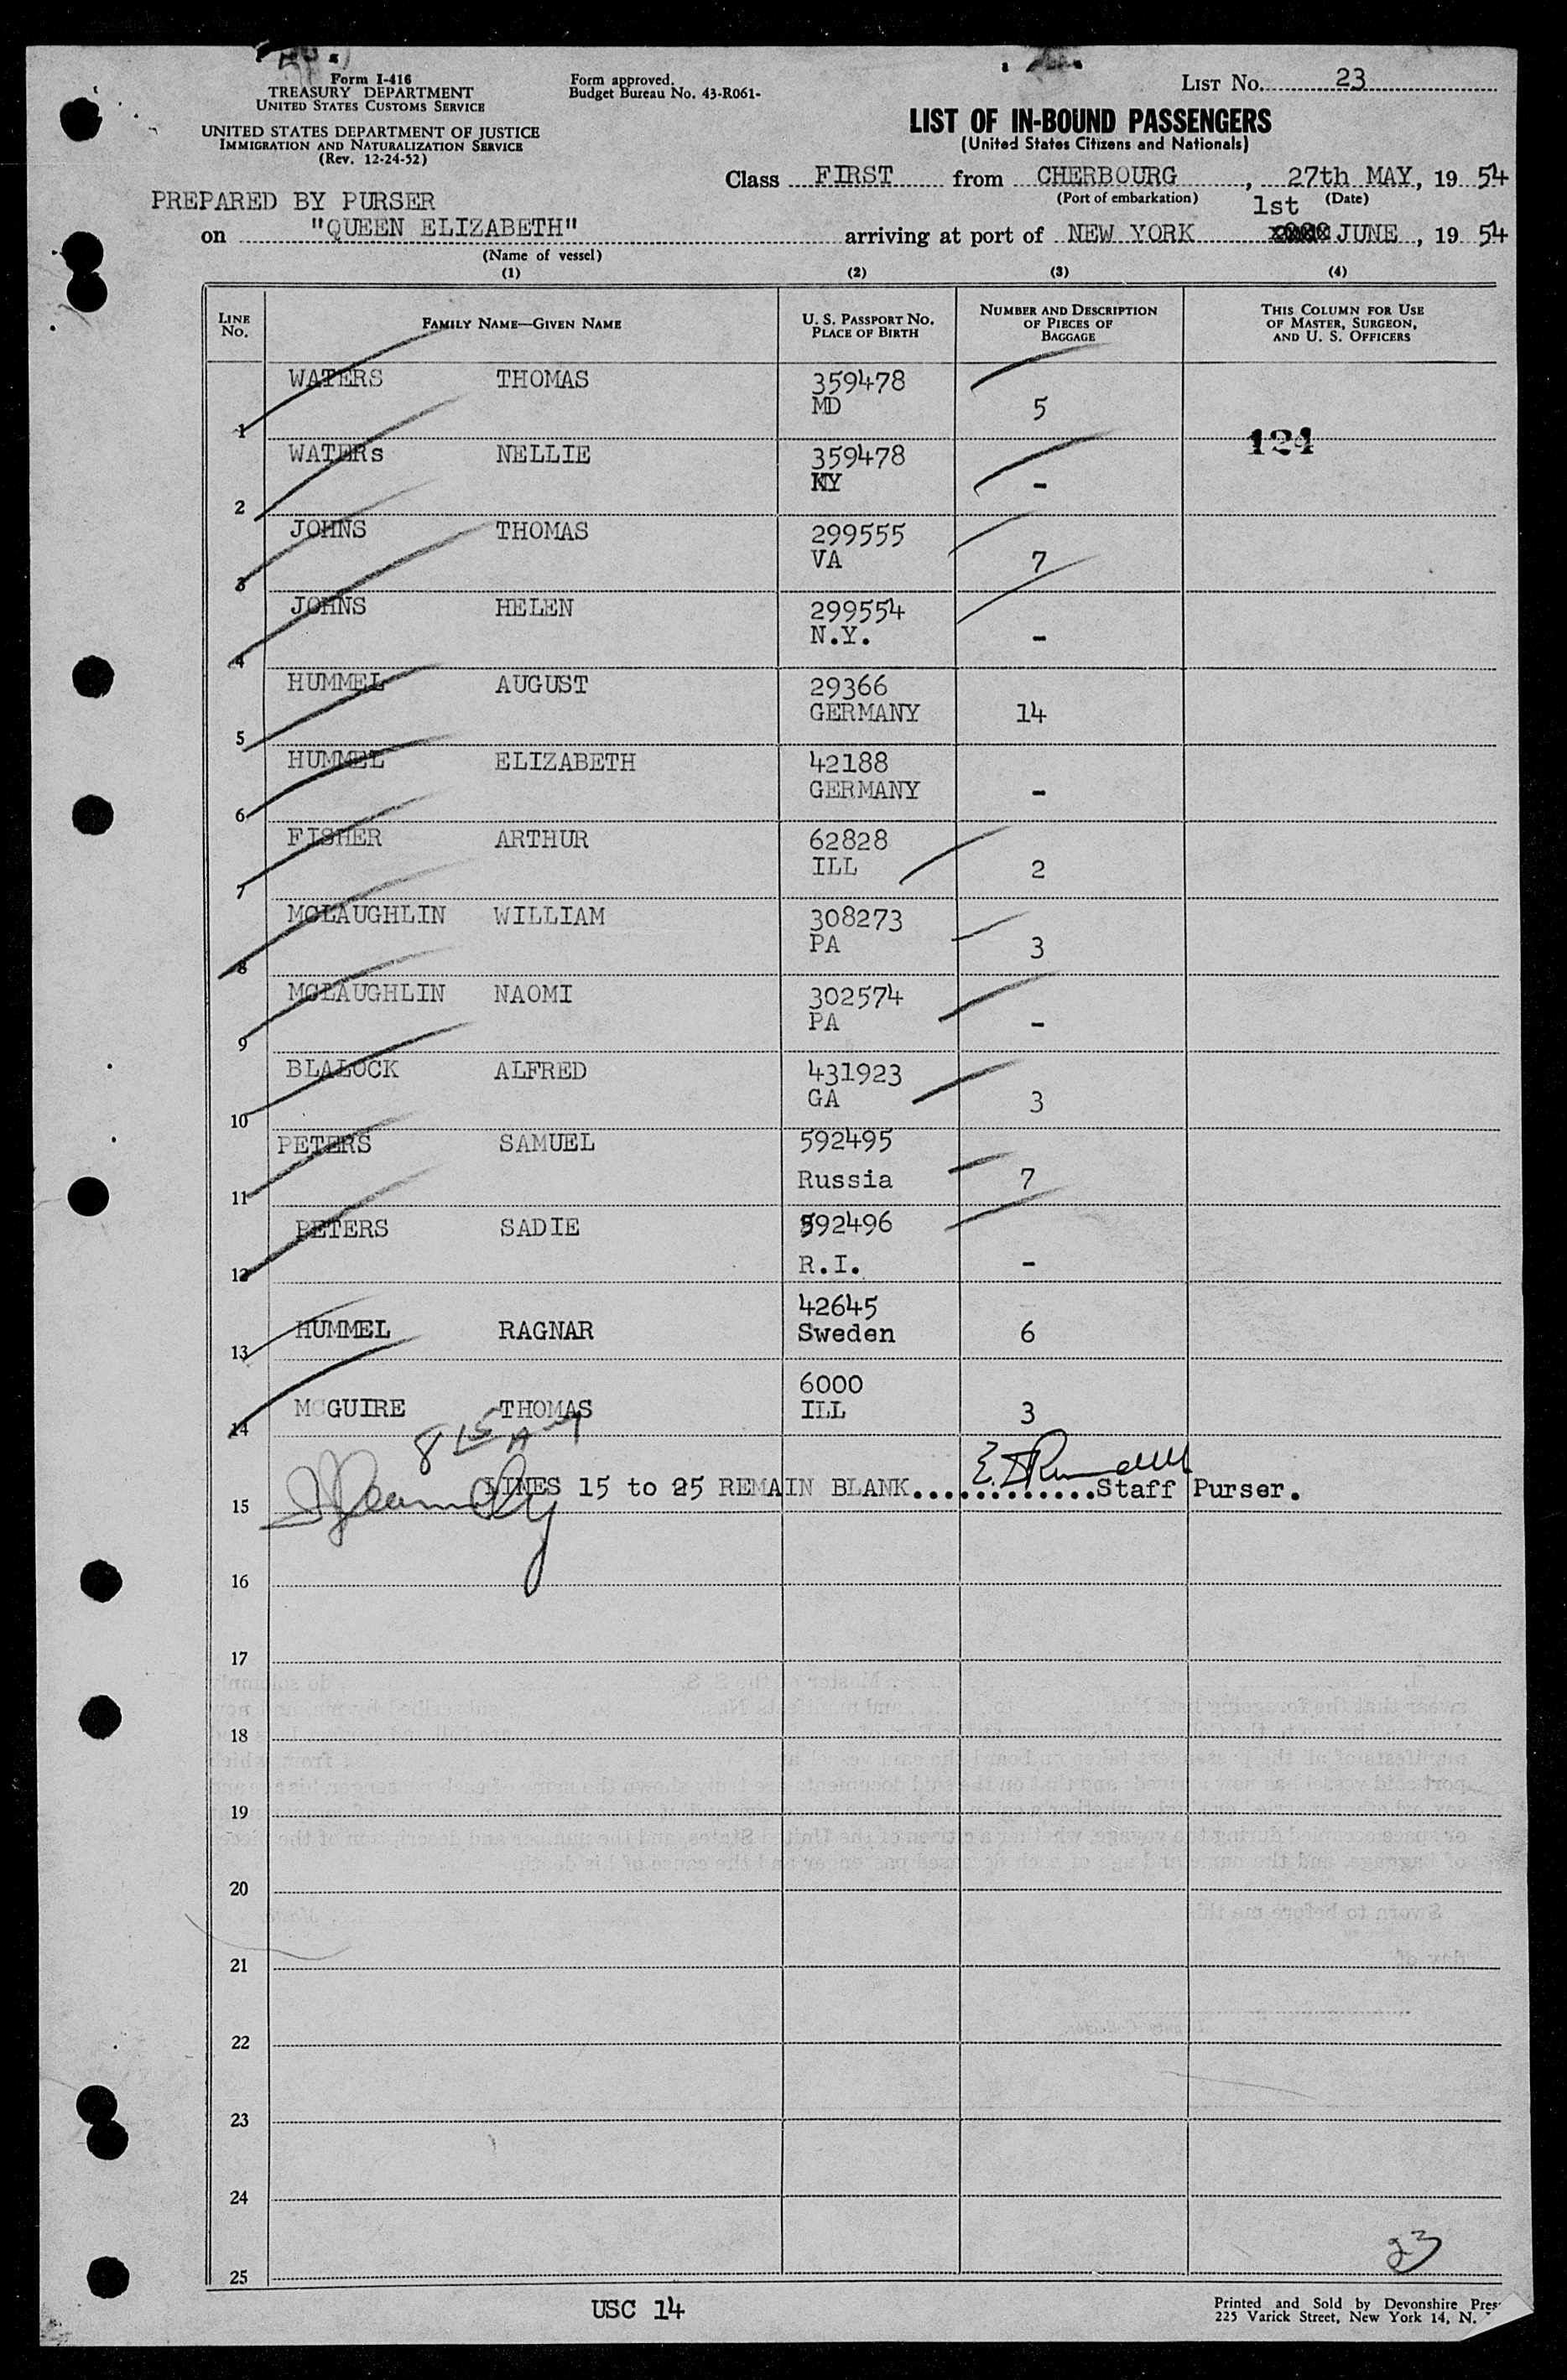 Form I-416
TREASURY DEPARTMENT
UNITED STATES CUSTOMS SERVICE
UNITED STATES DEPARTMENT OF JUSTICE
IMMIGRATION AND NATURALIZATION SERVICE
(Rev. 12-24-52)
Form approved.
Budget Bureau No. 43-R061-
LIST No. 23
LIST OF IN-BOUND PASSENGERS
(United States Citizens and Nationals)
Class FIRST from CHERBOURG, 27th MAY, 19 54
(Port of embarkation) (Date)
PREPARED BY PURSER
1st
on "QUEEN ELIZABETH" arriving at port of NEW YORK JUNE, 19 54
(Name of vessel)
(1) (2) (3) (4)
LINE NO. FAMILY NAME—GIVEN NAME U. S. PASSPORT NO. PLACE OF BIRTH NUMBER AND DESCRIPTION OF PIECES OF BAGGAGE THIS COLUMN FOR USE OF MASTER, SURGEON, AND U. S. OFFICERS
WATERS THOMAS 359478
1 MD 5
124
WATERs NELLIE 359478
2 NY -
JOHNS THOMAS 299555
3 VA 7
JOHNS HELEN 299554
4 N.Y. -
HUMMEL AUGUST 29366
5 GERMANY 14
HUMMEL ELIZABETH 42188
6 GERMANY -
FISHER ARTHUR 62828
7 ILL 2
MCLAUGHLIN WILLIAM 308273
8 PA 3
MCLAUGHLIN NAOMI 302574
9 PA -
BLALOCK ALFRED 431923
10 GA 3
PETERS SAMUEL 592495
11 Russia 7
PETERS SADIE 592496
12 R.I. -
42645
13 HUMMEL RAGNAR Sweden 6
6000
14 MCGUIRE THOMAS ILL 3
15 LINES 15 to 25 REMAIN BLANK.............Staff Purser.
16
17
18
19
20
21
22
23
24
23
25
USC 14
Printed and Sold by Devonshire
225 Varick Street, New York 14, N.